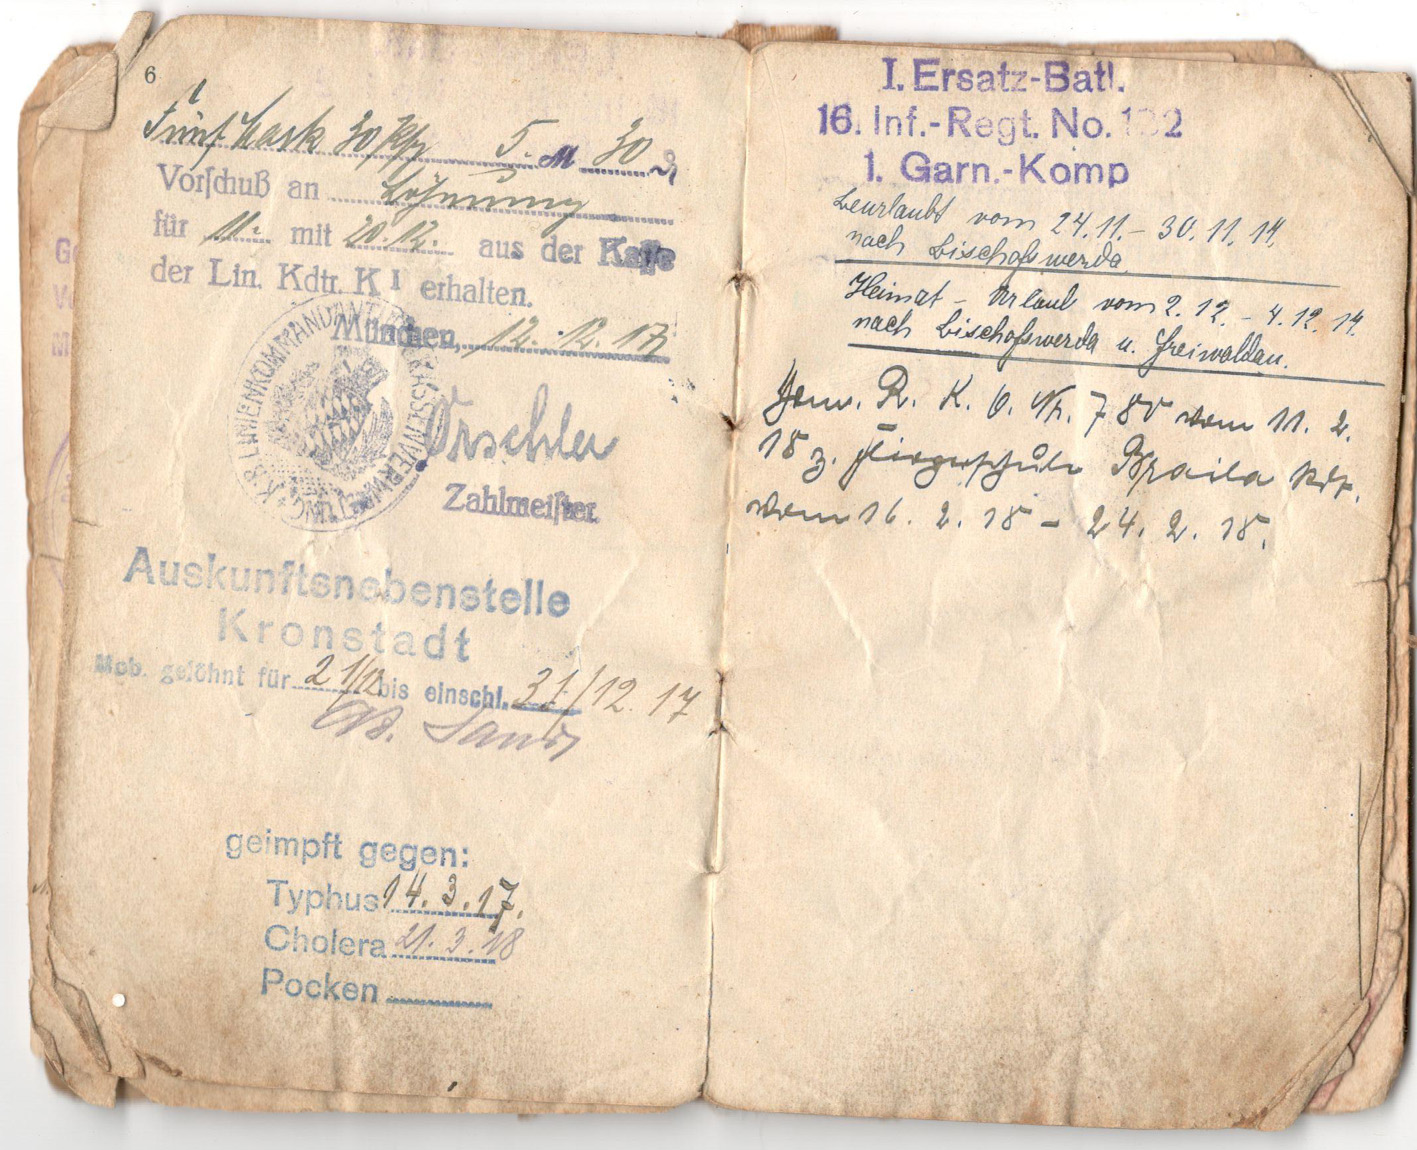 6
Fünf Mark 30 Pfg 5. M 30 ₰
Vorschuß an Löhnung
für 11.12. mit 20.12. aus der Kasse
der Lin. Kdtr. K I erhalten.
München, 12.12.17
K.B. LINIENKOMMANDANTUR KASSENVERWALTUNG
Zahlmeister.
Auskunftsnebenstelle
Kronstadt
Mob. gelöhnt für 21/12 bis einschl. 31/12. 17
geimpft gegen:
Typhus 14.3.17.
Cholera 21.3.18
Pocken
I. Ersatz-Batl.
16. Inf.-Regt. No. 182
1. Garn.-Komp
Beurlaubt vom 24.11. – 30.11.17.
nach Bischofswerda
Heimat – Urlaub vom 2.12. – 4.12.17.
nach Bischofswerda u. Freiwaldau.
Gem. R. K. O. Nr. 780 vom 11. 2.
18 z. Fliegerschule Braila kdt.
vom 16. 2. 18 – 24. 2. 18.